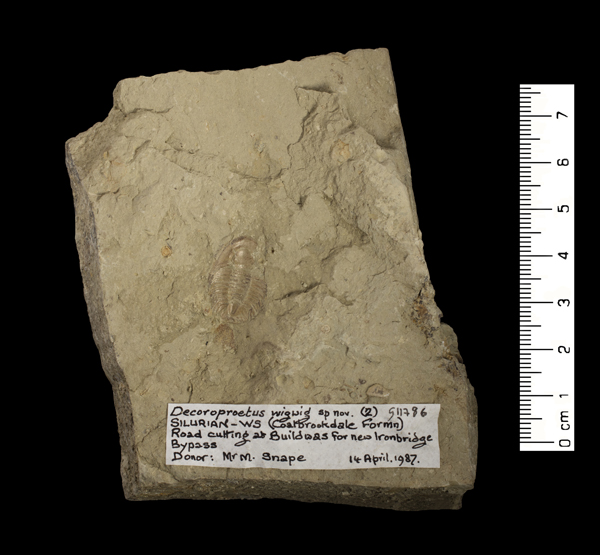 Decoroproetus wigwig sp nov. (2) G11786
SILURIAN-WS (Coalbrookdale Formn)
Road cutting at Buildwas for new Ironbridge
Bypass
Donor: Mr M. Snape 14 April, 1987.
7
6
5
4
3
2
1
0 cm